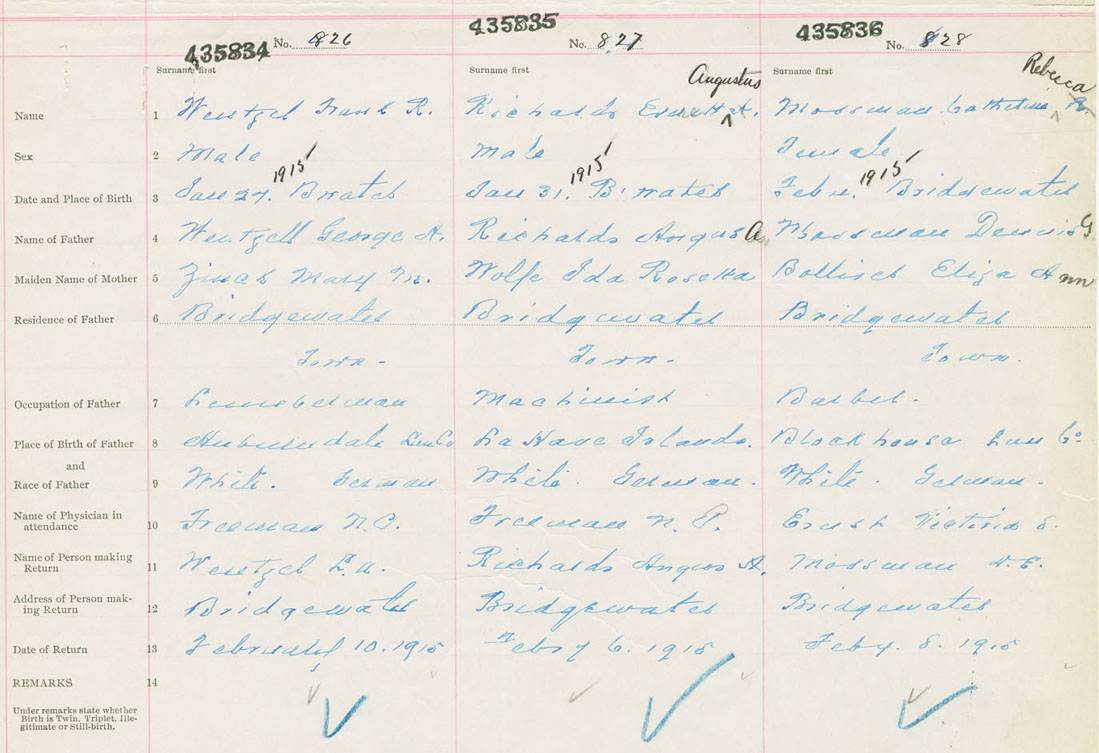 435834 No. 826 435835 No. 827 435836 No. 828
Surname first Surname first Surname first
Augustus Rebecca
Name 1 Wentzel Frank R. Richards Everett A. Mossman Catherine R.
Sex 2 Male Male Female
1915 1915 1915
Date and Place of Birth 3 Jan 27. B'water Jan 31. B'water Feb Bridgewater
Name of Father 4 Wentzell George A. Richards Angus A Mossman Dennis G
Maiden Name of Mother 5 Zinck Mary M. Wolfe Ida Rosetta Bolliser Eliza Ann
Residence of Father 6 Bridgewater Bridgewater Bridgewater
Town - Town - Town.
Occupation of Father 7 Lumberman Machinist Barber.
Place of Birth of Father 8 Auburndale Lun Co La Have Islands. Blockhouse Lun Co
and
Race of Father 9 White. German White. German. White. German.
Name of Physician in
attendance 10 Freeman N.P. Freeman N. P. Ernst Victoria S.
Name of Person making
Return 11 Wentzel Richards Angus A. Mossman
Address of Person mak-
ing Return 12 Bridgewater Bridgewater Bridgewater
Date of Return 13 February 10. 1915 Feby 6. 1915 Feby. 8. 1915
REMARKS 14
Under remarks state whether
Birth is Twin, Triplet, Ille-
gitimate or Still-birth.